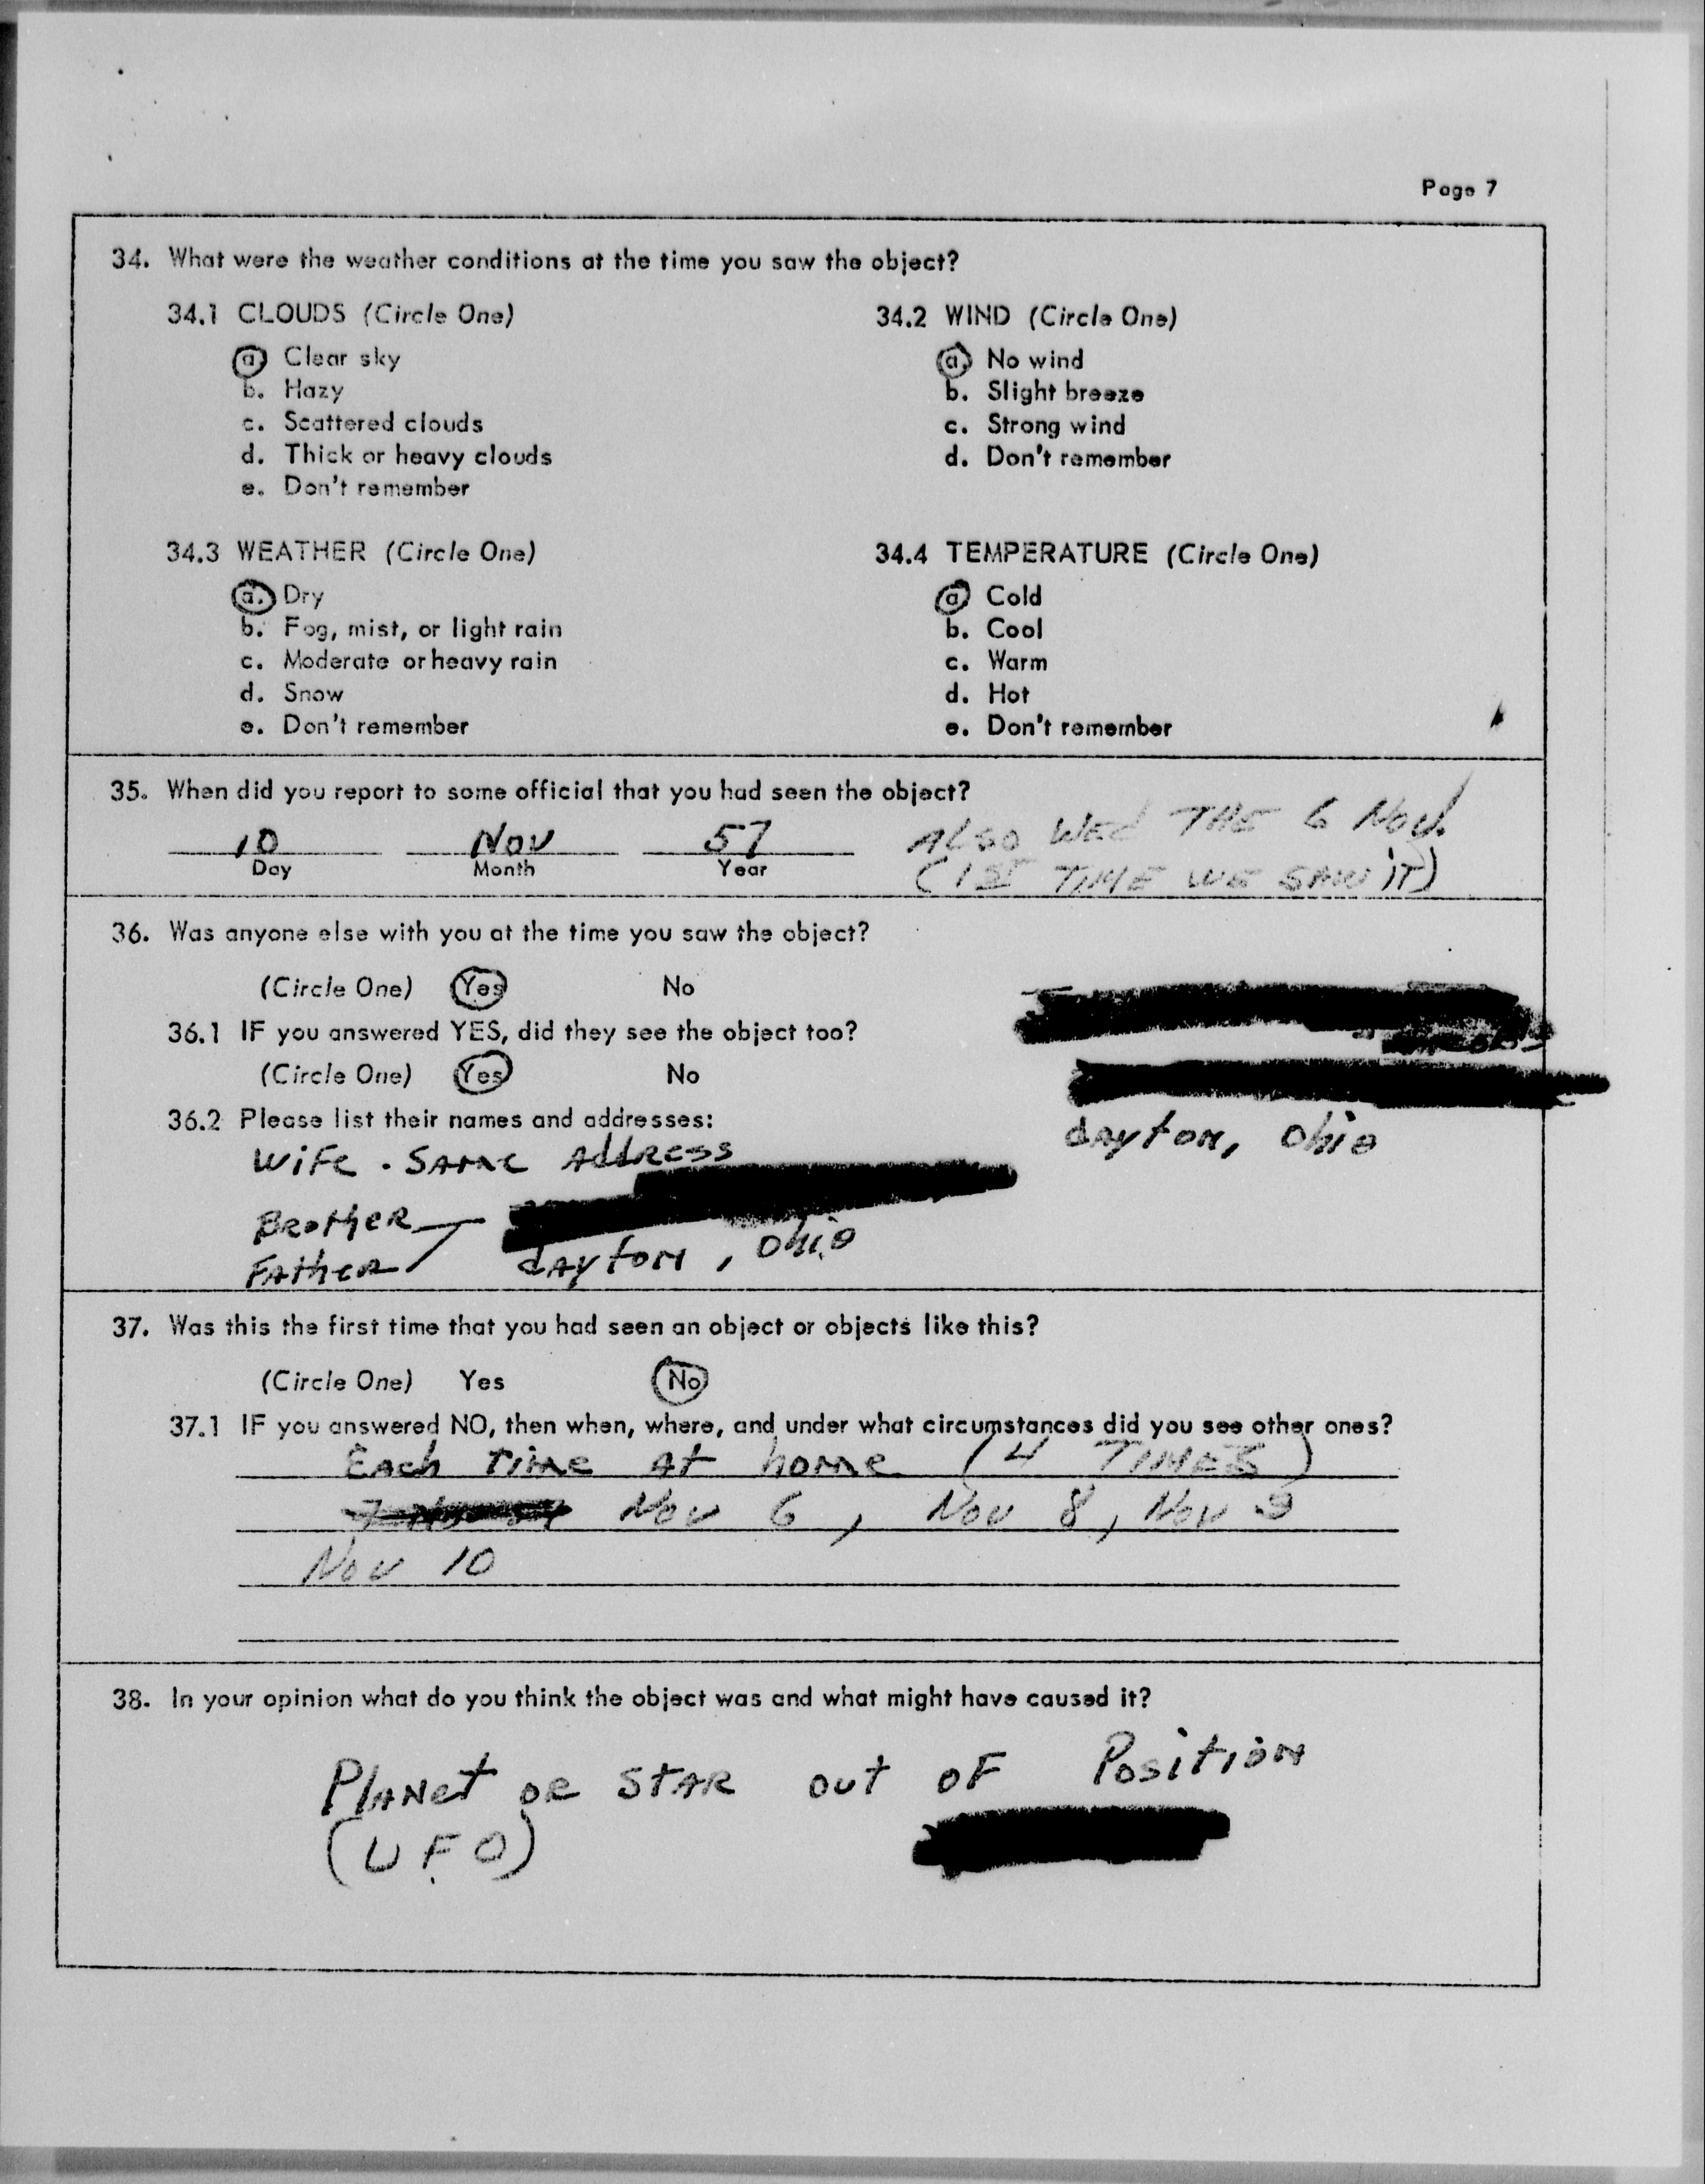 Page 7
34. What were the weather conditions at the time you saw the object?
34.1 CLOUDS (Circle One)
a. Clear sky
b. Hazy
c. Scattered clouds
d. Thick or heavy clouds
e. Don't remember
34.2 WIND (Circle One)
a. No wind
b. Slight breeze
c. Strong wind
d. Don't remember
34.3 WEATHER (Circle One)
a. Dry
b. Fog, mist, or light rain
c. Moderate or heavy rain
d. Snow
e. Don't remember
34.4 TEMPERATURE (Circle One)
a. Cold
b. Cool
c. Warm
d. Hot
e. Don't remember
35. When did you report to some official that you had seen the object?
10 Nov 57
Day Month Year
ALSO WED THE 6 Nov.
(1ST TIME WE SAW IT)
36. Was anyone else with you at the time you saw the object?
(Circle One) Yes No
36.1 IF you answered YES, did they see the object too?
(Circle One) Yes No
36.2 Please list their names and addresses:
dayton, Ohio
WIFE. SAME AddRESS
BROTHER
FATHER
dayton, Ohio
37. Was this the first time that you had seen an object or objects like this?
(Circle One) Yes No
37.1 IF you answered NO, then when, where, and under what circumstances did you see other ones?
EACH TIME AT home (4 TIMES)
Nov 6, Nov 8, Nov 9
Nov 10
38. In your opinion what do you think the object was and what might have caused it?
PLANET OR STAR OUT OF POSITION
(UFO)